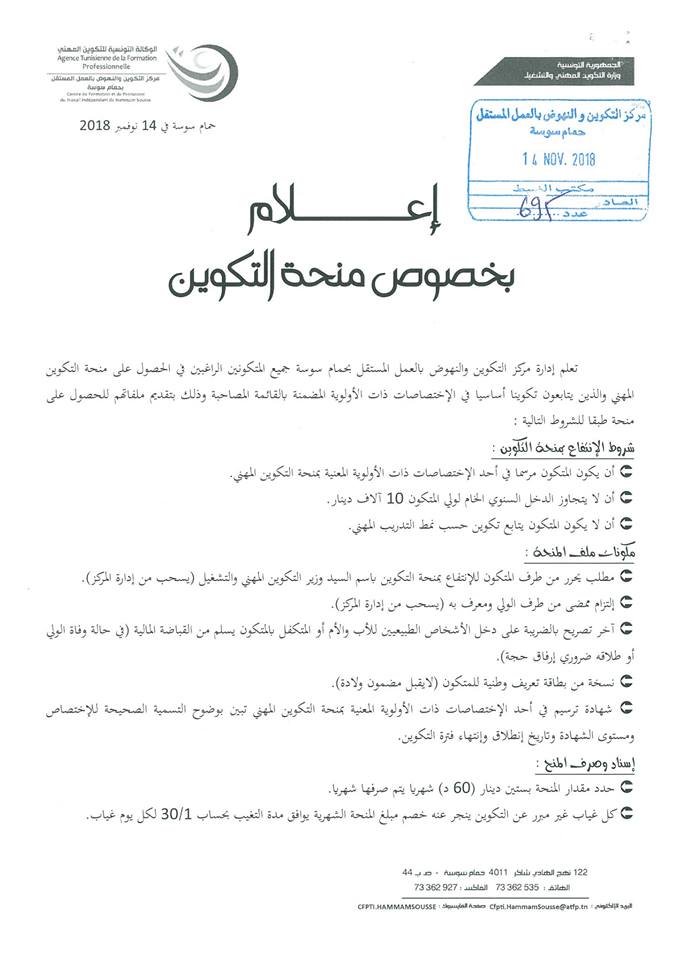 الوكالة التونسية للتكوين المهني
Agence Tunisienne de la Formation
Professionnelle
مركز التكوين والنهوض بالعمل المستقل
بحمام سوسة
Centre de Formation et de Promotion
du Travail Indépendant de Hammam Sousse
الجمهورية التونسية
وزارة التكوين المهني والتشغيل
حمام سوسة في 14 نوفمبر 2018
مركز التكوين و النهوض بالعمل المستقل
حمام سوسة
14 NOV. 2018
مكتب الضبط
الصادر
عدد
إعـــــلام
بخصوص منحة التكوين
تعلم إدارة مركز التكوين والنهوض بالعمل المستقل بحمام سوسة جميع المتكونين الراغبين في الحصول على منحة التكوين
المهني والذين يتابعون تكوينا أساسيا في الإختصاصات ذات الأولوية المضمنة بالقائمة المصاحبة وذلك بتقديم ملفاتهم للحصول على
منحة طبقا للشروط التالية :
شروط الإنتفاع بمنحة التكوين :
أن يكون المتكون مرسما في أحد الإختصاصات ذات الأولوية المعنية بمنحة التكوين المهني.
أن لا يتجاوز الدخل السنوي الخام لولي المتكون 10 آلاف دينار.
أن لا يكون المتكون يتابع تكوين حسب نمط التدريب المهني.
مكونات ملف المنحة :
مطلب يحرر من طرف المتكون للإنتفاع بمنحة التكوين باسم السيد وزير التكوين المهني والتشغيل (يسحب من إدارة المركز).
إلتزام ممضى من طرف الولي ومعرف به (يسحب من إدارة المركز).
آخر تصريح بالضريبة على دخل الأشخاص الطبيعيين للأب والأم أو المتكفل بالمتكون يسلم من القباضة المالية (في حالة وفاة الولي
أو طلاقه ضروري إرفاق حجة).
نسخة من بطاقة تعريف وطنية للمتكون (لايقبل مضمون ولادة).
شهادة ترسيم في أحد الإختصاصات ذات الأولوية المعنية بمنحة التكوين المهني تبين بوضوح التسمية الصحيحة للإختصاص
ومستوى الشهادة وتاريخ إنطلاق وإنتهاء فترة التكوين.
إسناد وصرف المنح :
حدد مقدار المنحة بستين دينار (60 د) شهريا يتم صرفها شهريا.
كل غياب غير مبرر عن التكوين ينجر عنه خصم مبلغ المنحة الشهرية يوافق مدة التغيب بحساب 30/1 لكل يوم غياب.
122 نهج الهادي شاكر 4011 حمام سوسة - ص ب 44
الهاتف : 535 362 73 الفاكس : 927 362 73
البريد الإلكتروني : Cfpti.HammamSousse@atfp.tn صفحة الفايسبوك : CFPTI.HAMMAMSOUSSE